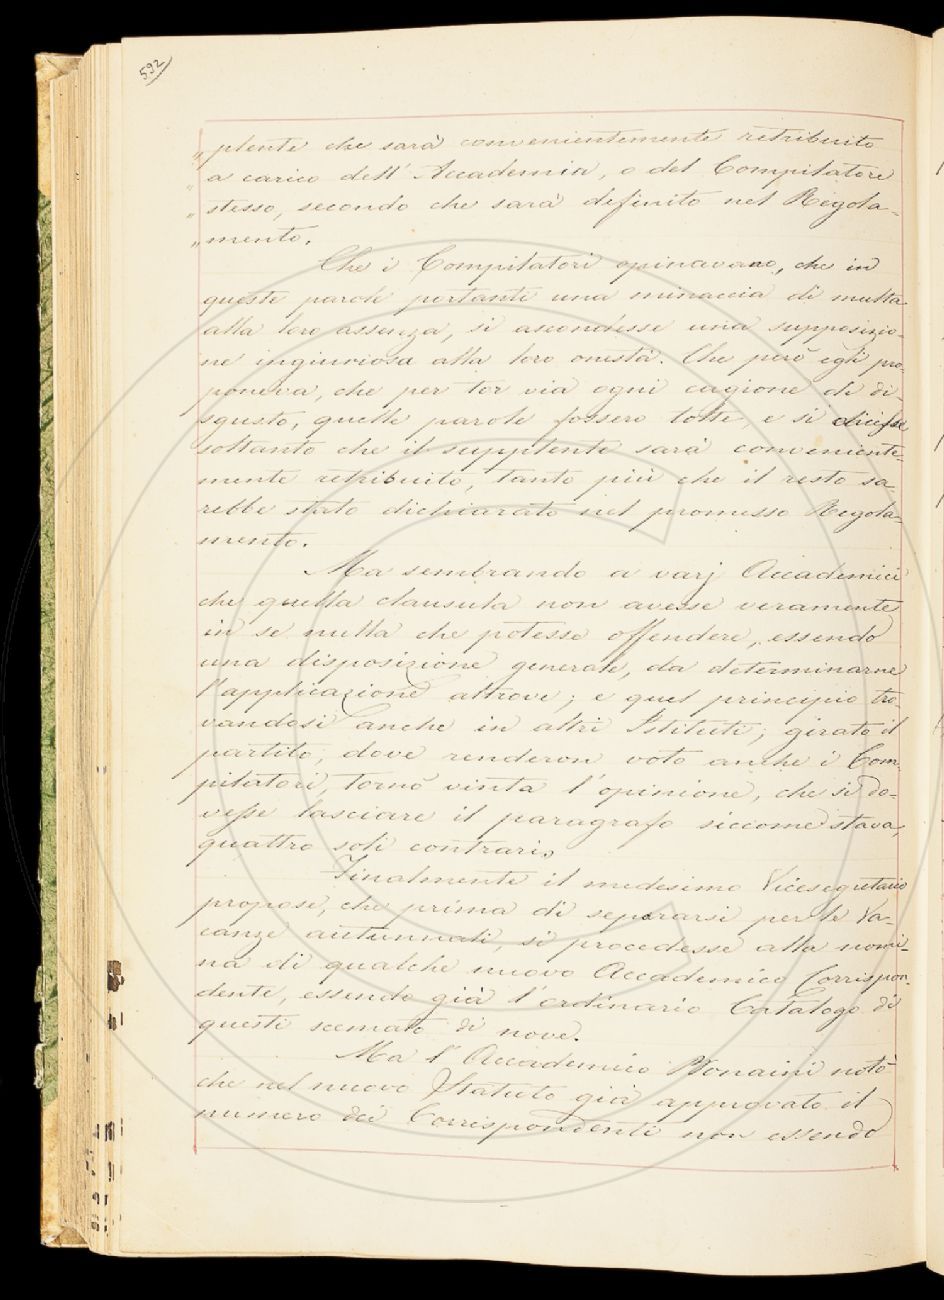 592
„ plente che sarà convenientemente retribuito
„ a carico dell' Accademia, o del Compilatore
„ stesso, secondo che sarà definito nel Regola-
„ mento.
Che i Compilatori opinavano, che in
queste parole portanti una minaccia di multa
alla loro assenza, si ascondesse una supposizio-
ne ingiuriosa alla loro onestà. Che però egli pro-
poneva, che per tor via ogni cagione di di-
sgusto, quelle parole fossero tolte, e si dicesse
soltanto che il supplente sarà conveniente-
mente retribuito, tanto più che il resto sa-
rebbe stato dichiarato nel promesso Regola-
mento.
Ma sembrando a varj Accademici
che quella clausula non avesse veramente
in se nulla che potesse offendere, essendo
una disposizione generale, da determinarne
l'applicazione altrove; e quel principio tro-
vandosi anche in altri Istituti; girato il
partito, dove renderon voto anche i Com-
pilatori, tornò vinta l'opinione, che si do-
vesse lasciare il paragrafo siccome stava,
quattro soli contrari.
Finalmente il medesimo Vicesegretario
propose, che prima di separarsi per le Va-
canze autunnali, si procedesse alla nomi-
na di qualche nuovo Accademico Corrispon-
dente, essendo già l'ordinario Catalogo di
questi scemato di nove.
Ma l'Accademico Bonaini notò
che nel nuovo Statuto già approvato il
numero dei Corrispondenti non essendo